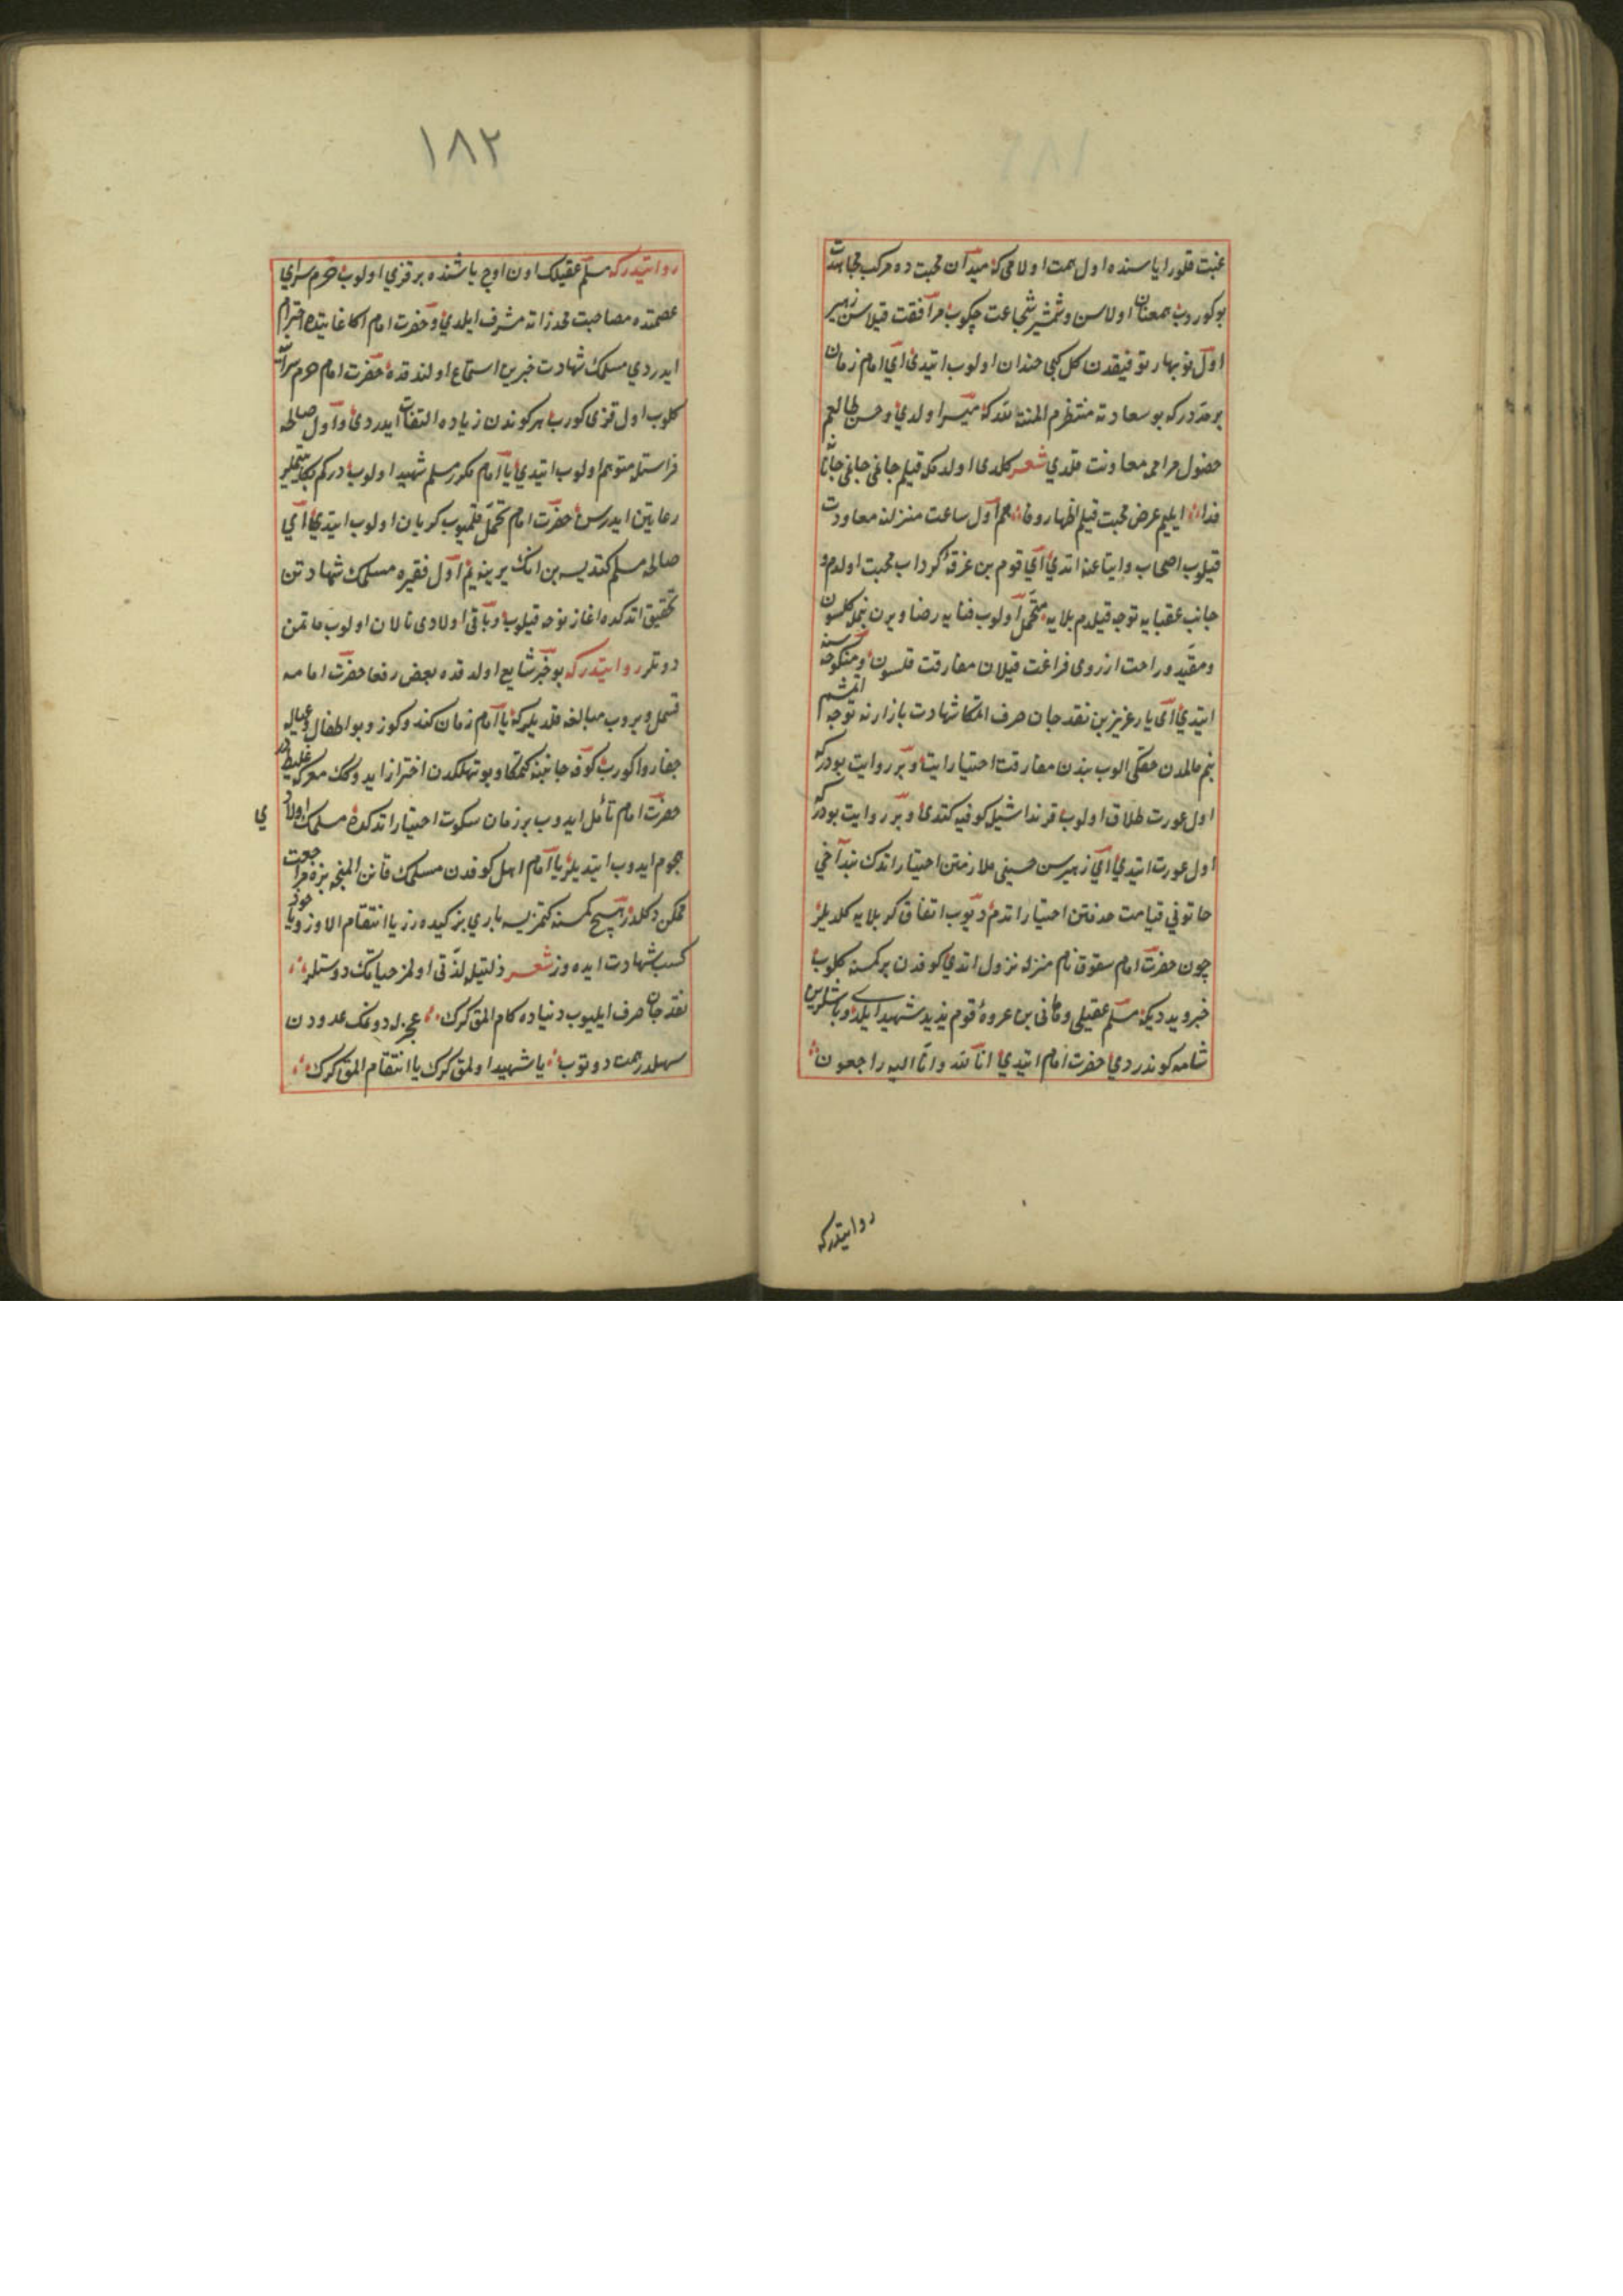 غبت قلور ایا سنده اول همت اولامی که میدان محبت ده مرکب مجاهدت
یوکوردوب همعنان اولاسن و شمشیر شجاعت چکوب مرافقت قیلاسن زهیر
اول نوبهار توفیقدن کل کبی خندان اولوب ایتدی ای امام زمان
بر مدتدرکه بو سعادته منتظرم المنة لله که میسر اولدی و حسن طالعم
حصول مرامه معاونت قلدی شعر کلدی اولدمکه قیلم جانمی جانانه
فدا ایلیم عرض محبت قیلم اظهار وفا هم اول ساعت منزلنه معاودت
قیلوب اصحاب و اتباعنه ایتدی ای قوم بن غرقه کرداب محبت اولدم و
جانب عقبایه توجه قیلدم بلایه متحمل اولوب فنایه رضا ویرن بنمله کلسون
و مقید راحت ارزوی فراغت قیلان مفارقت قلسون و منکوحه سنه
ایتدی ای یار عزیز بن نقد جان صرف اتمکا شهادت بازارنه توجه اتمشم
بنم مالمدن حقکی الوب بندن مفارقت اختیار ایت و بر روایت بودرکه
اول عورت طلاق اولوب قرنداشیله کوفیه کتدی و بر روایت بودرکه
اول عورت ایتدی ای زهیر سن حسینی ملازمتن اختیار اتدك بن داخی
خاتونی قیامت خدمتن اختیار اتدم دیوب اتفاق کربلایه کلدیلر
چون حضرت امام سقوق نام منزله نزول اتدی کوفدن بر کمسنه کلوب
خبر ویردیکه مسلم عقیلی و هانی بن عروه قوم یزید شهید ایلدی و باشلرین
شامه کوندردی حضرت امام ایتدی انا لله و انا الیه راجعون
روایتدرکه
١٨٢
روایتدرکه مسلم عقیلك اون اوچ یاشنده بر قزی اولوب حرم سرای
عصمتده مصاحبت مخدراته مشرف ایلدی و حضرت امام اکا غایتده احترام
ایدردی مسلمك شهادت خبرین استماع اولندقده حضرت امام حرم سرایه
کلوب اول قزی کورب هر کوندن زیاده التفات ایدردی و اول صالحه
فراستله متوهم اولوب ایتدی یا امام مکر مسلم شهید اولوبدرکم بکا یتیملر
رعایتن ایدرسن حضرت امام تحمل قلمیوب کریان اولوب ایتدی ای
صالحه مسلم کتدیسه بن انك یرینه یم اول فقیره مسلمك شهادتن
تحقیق اتدکده اغاز نوحه قیلوب و باقی اولادی نالان اولوب ماتمن
دوتلر روایتدرکه بو خبر شایع اولدقده بعض رفقا حضرت امامه
قسمل ویروب مبالغه قلدیلرکه یا امام زمان کندوکوز و بو اطفال و عیاله
جفا روا کورب کوفه جانبنه کتمکا و بو تهلکدن احتراز ایدوکك معرکه غلیظدر
حضرت امام تأمل ایدوب بر زمان سکوت اختیار اتدکده مسلمك اولاد
ی
هجوم ایدوب ایتدیلر یا امام اهل کوفدن مسلمك قانن المینجه بزه مراجعت
ممکن دکلدر هیچ کمسنه کتمزیسه باری بز کیده رز یا انتقام الاوز و یا خود
کسب شهادت ایده وز شعر ذلتیله لذتی اولمز حیاتك دوستلر
نقد جان صرف ایلیوب دنیاده کام المق کرك عجزله دونمك عدودن
سهلدر همت دوتوب یا شهید اولمق کرك یا انتقام المق کرك